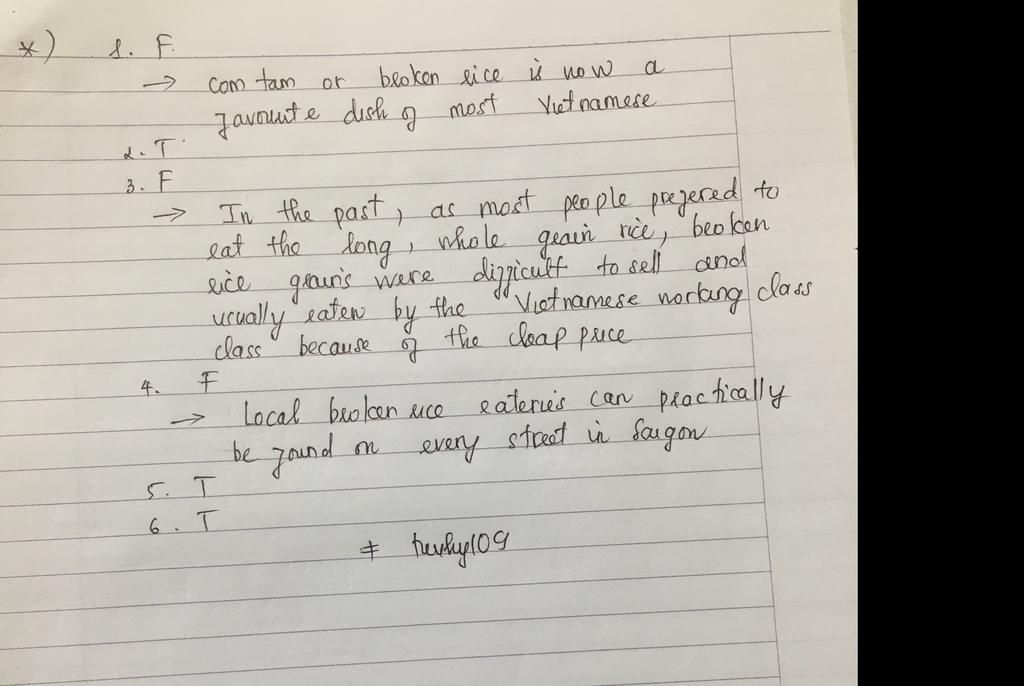 *) 1. F.
→ Com tam or broken rice is now a
favourite dish of most Vietnamese
2. T
3. F
→ In the past, as most people prefered to
eat the long, whole grain rice, broken
rice grains were difficult to sell and
usually eaten by the Vietnamese working class
class because of the cheap price
4. F
→ Local broken rice eateries can practically
be found on every street in Saigon
5. T
6. T